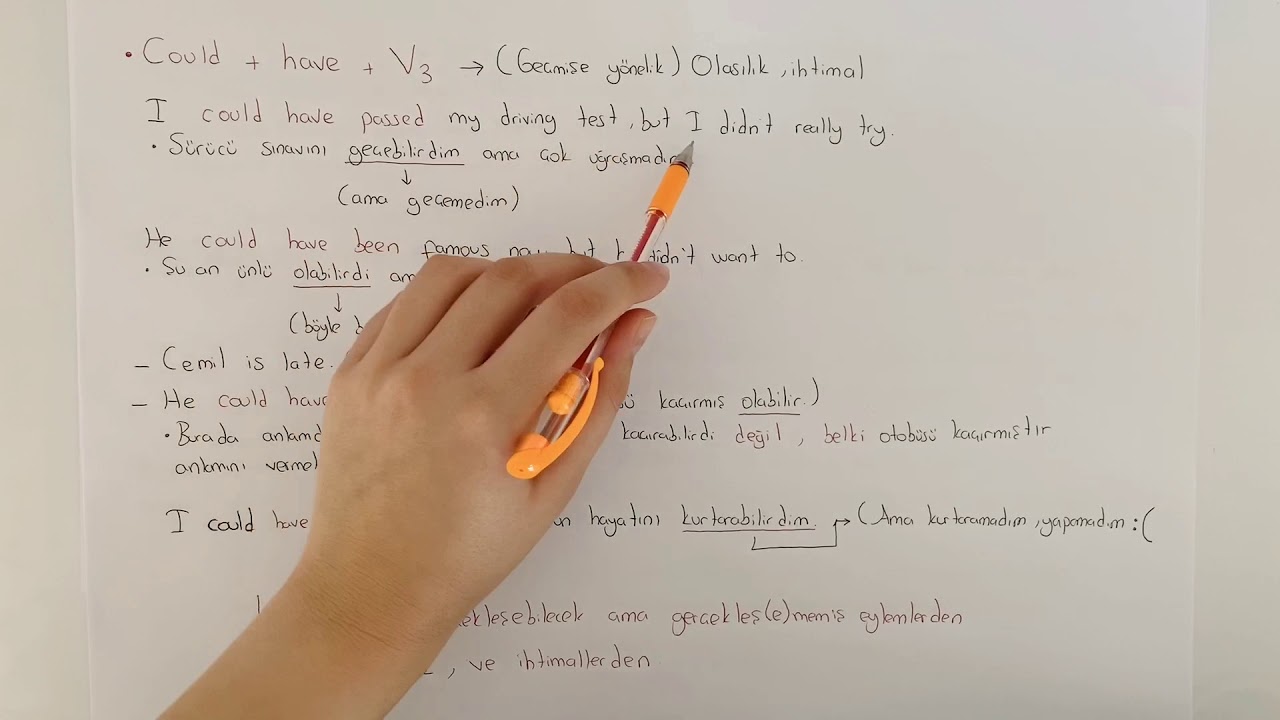 • Could + have + V3 → (Geçmişe yönelik) Olasılık, ihtimal
I could have passed my driving test, but I didn't really try.
• Sürücü sınavını geçebilirdim ama çok
↓
(ama geçemedim)
He could have been famous now but didn't want to.
• Şu an ünlü olabilirdi
↓
(böyle
– Cemil is late.
– He could have kaçırmış olabilir.)
• Burada kaçırabilirdi değil, belki otobüsü kaçırmıştır
anlamını
I could have hayatını kurtarabilirdim. → (Ama kurtaramadım, yapamadım :(
ama gerçekleş(e)memiş eylemlerden
, ve ihtimallerden